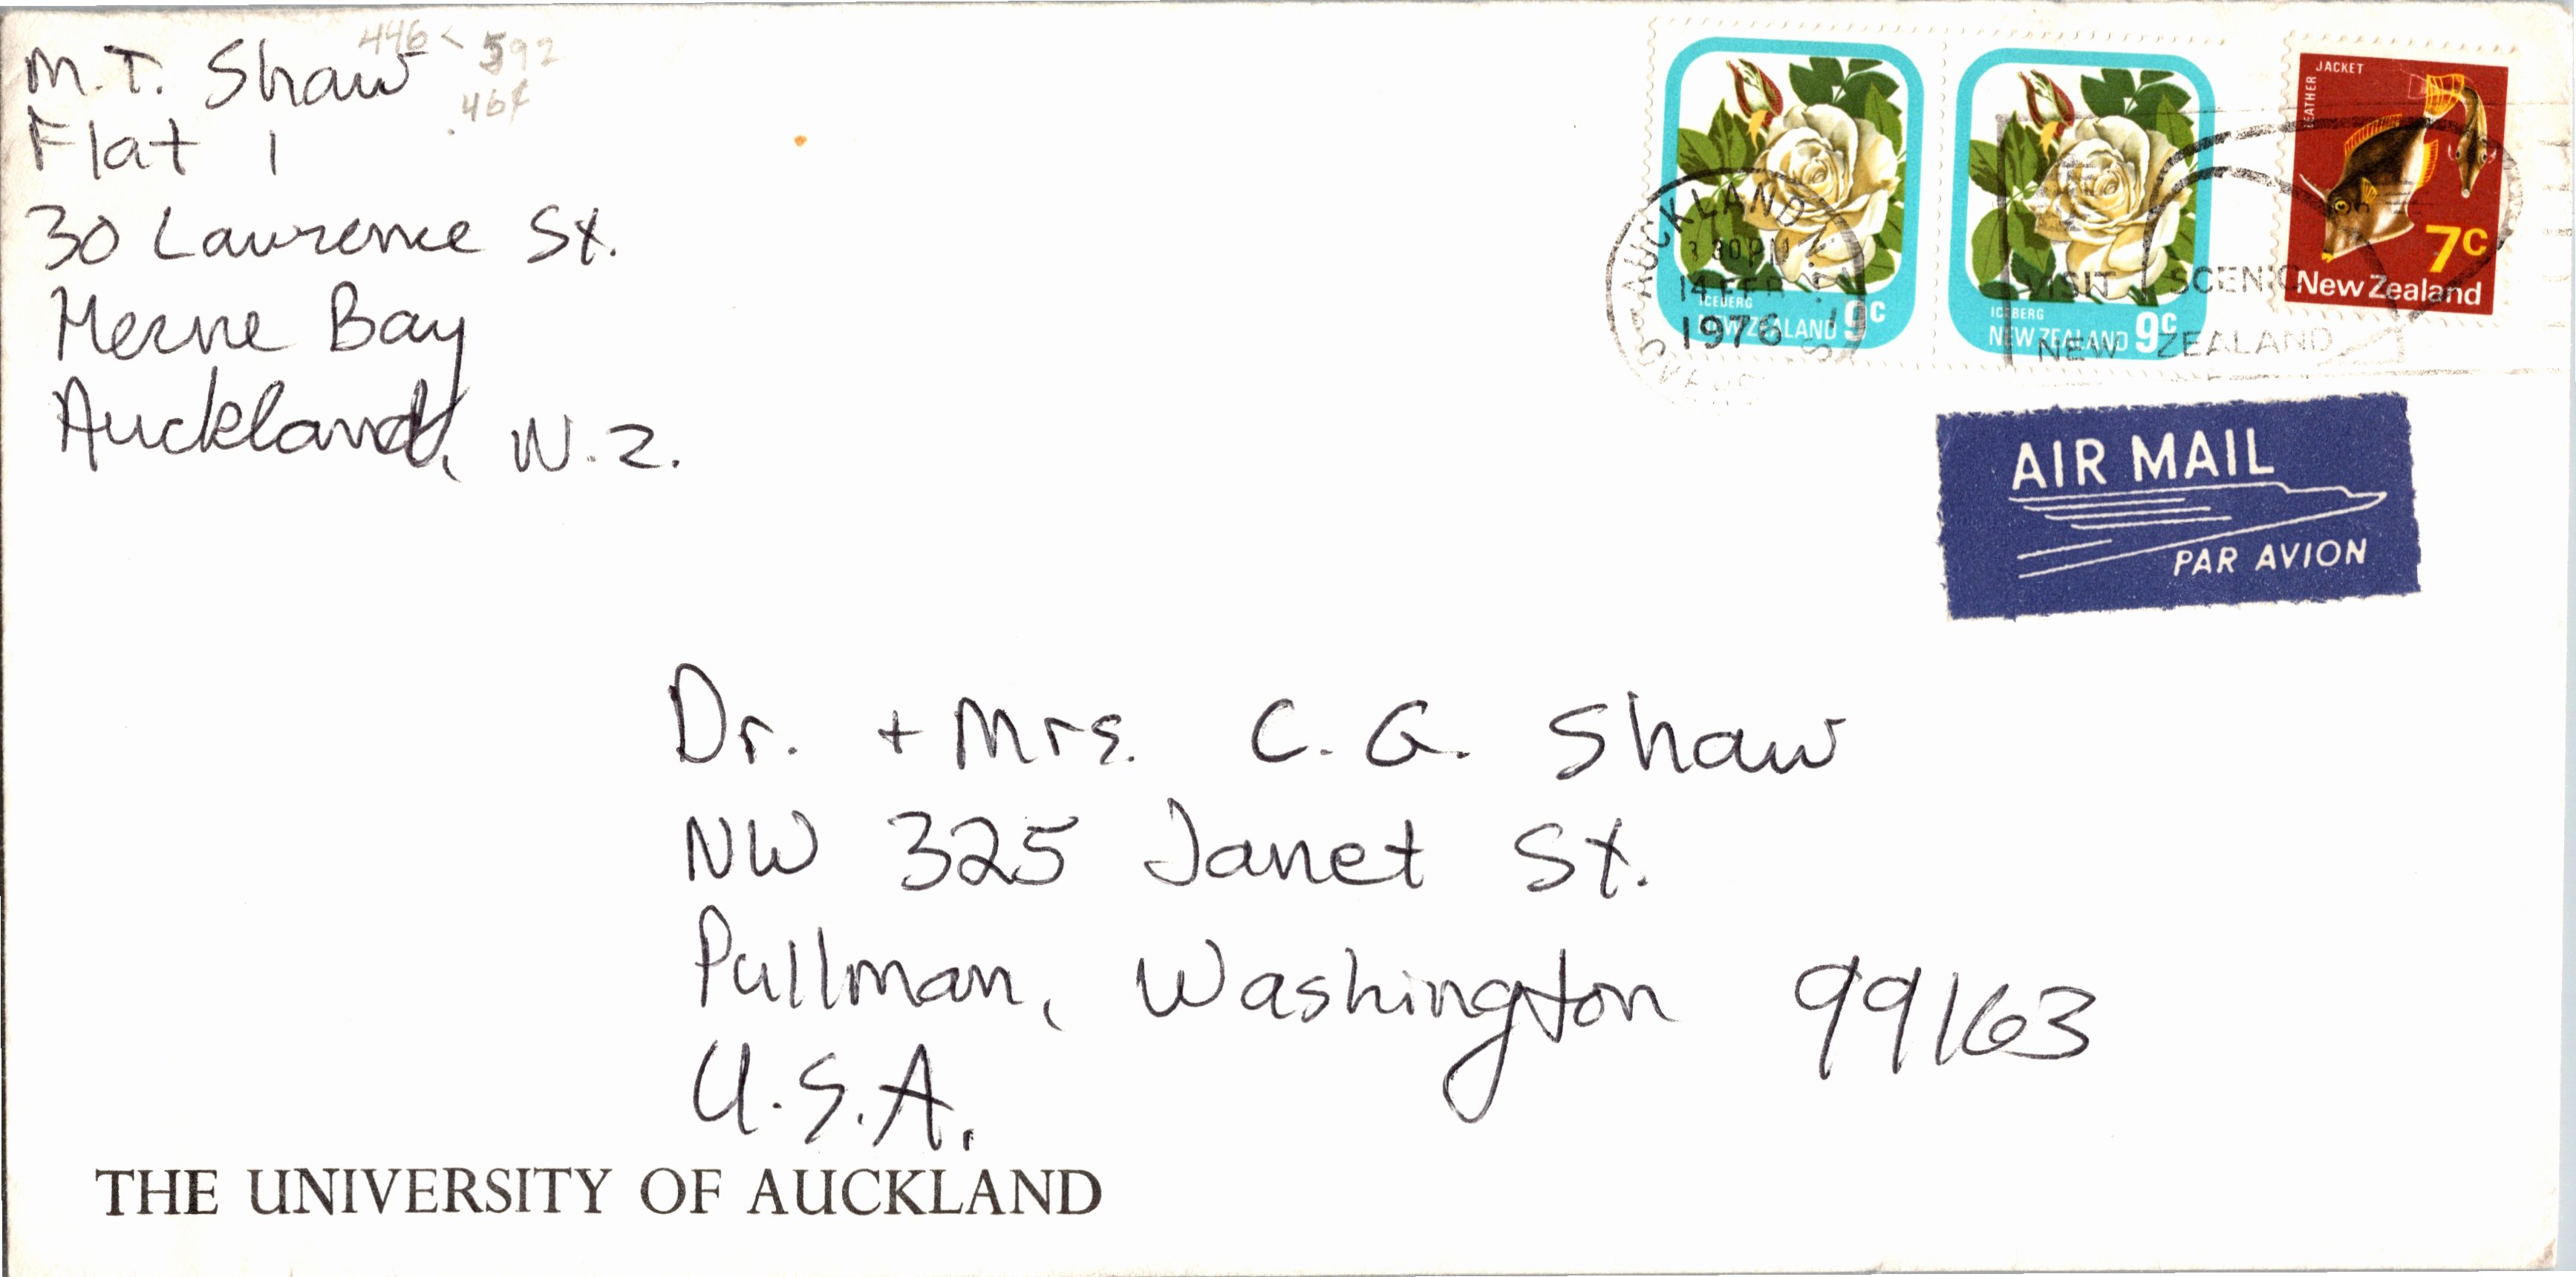 446 < 592
.46¢
M.T. Shaw
Flat 1
30 Lawrence St.
Herne Bay
Auckland, N.Z.
ICEBERG
NEW ZEALAND 9c
ICEBERG
NEW ZEALAND 9c
LEATHER JACKET
7c
New Zealand
AUCKLAND
3 30PM
14 FEB
1976
VISIT SCENIC
NEW ZEALAND
AIR MAIL
PAR AVION
Dr. + Mrs. C. G. Shaw
NW 325 Janet St.
Pullman, Washington 99163
U.S.A.
THE UNIVERSITY OF AUCKLAND